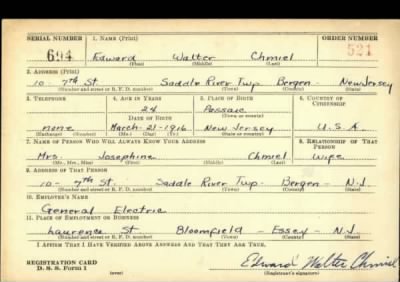 SERIAL NUMBER 1. NAME (Print) ORDER NUMBER
694 Edward Walter Chmiel 521
(First) (Middle) (Last)
2. ADDRESS (Print)
10-7th St. Saddle River Twp. Bergen - New Jersey
(Number and street or R. F. D. number) (Town) (County) (State)
3. TELEPHONE 4. AGE IN YEARS 5. PLACE OF BIRTH 6. COUNTRY OF CITIZENSHIP
24 Passaic
DATE OF BIRTH (Town or county)
none March-21-1916 New Jersey U.S.A
(Exchange) (Number) (Mo.) (Day) (Yr.) (State or country)
7. NAME OF PERSON WHO WILL ALWAYS KNOW YOUR ADDRESS 8. RELATIONSHIP OF THAT PERSON
Mrs. Josephine Chmiel Wife
(Mr., Mrs., Miss) (First) (Middle) (Last)
9. ADDRESS OF THAT PERSON
10-7th St. Saddle River Twp. Bergen - N.J.
(Number and street or R. F. D. number) (Town) (County) (State)
10. EMPLOYER'S NAME
General Electric
11. PLACE OF EMPLOYMENT OR BUSINESS
Laurence St Bloomfield - Essex - N.J
(Number and street or R. F. D. number) (Town) (County) (State)
I AFFIRM THAT I HAVE VERIFIED ABOVE ANSWERS AND THAT THEY ARE TRUE.
REGISTRATION CARD Edward Walter Chmiel
D. S. S. Form 1 (over) (Registrant's signature)